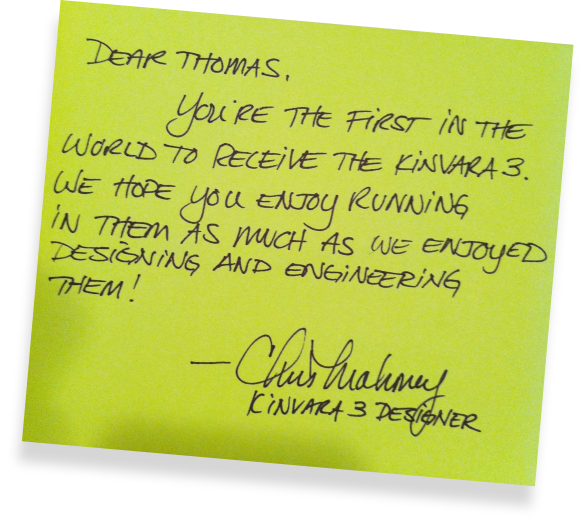 DEAR THOMAS,
YOU'RE THE FIRST IN THE
WORLD TO RECEIVE THE KINVARA 3.
WE HOPE YOU ENJOY RUNNING
IN THEM AS MUCH AS WE ENJOYED
DESIGNING AND ENGINEERING
THEM!
— Chris Mahoney
KINVARA 3 DESIGNER